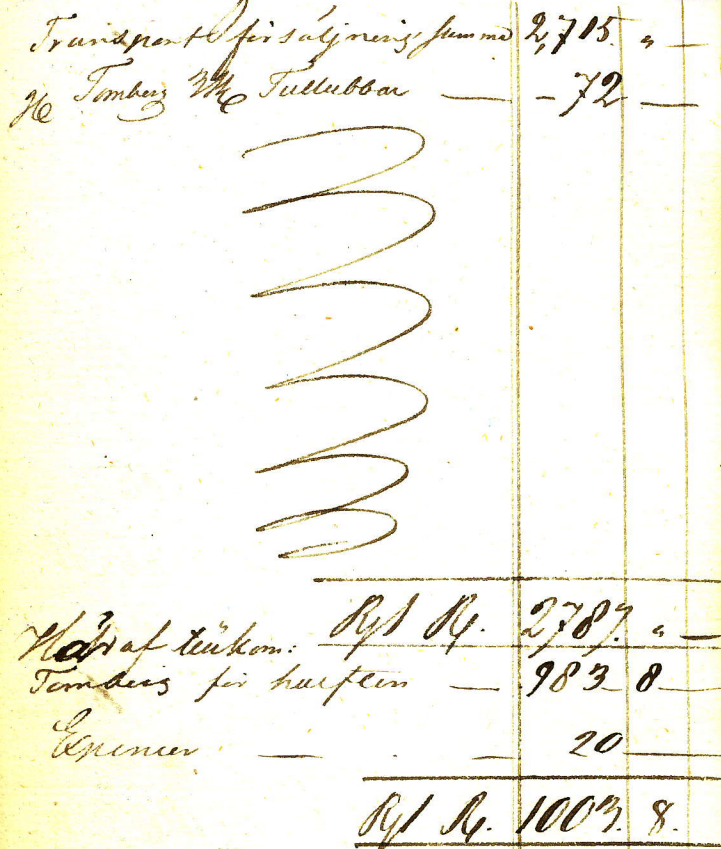 Transport försäljnings summa 2,715. " —
H Tornberg 3 Tullubbar — – 72 —
Rgs R. 2787. " —
Häraf tillkom:
Tornberg för hälften — 983 8 —
Expenser — — 20 —
Rgs R. 1003. 8.